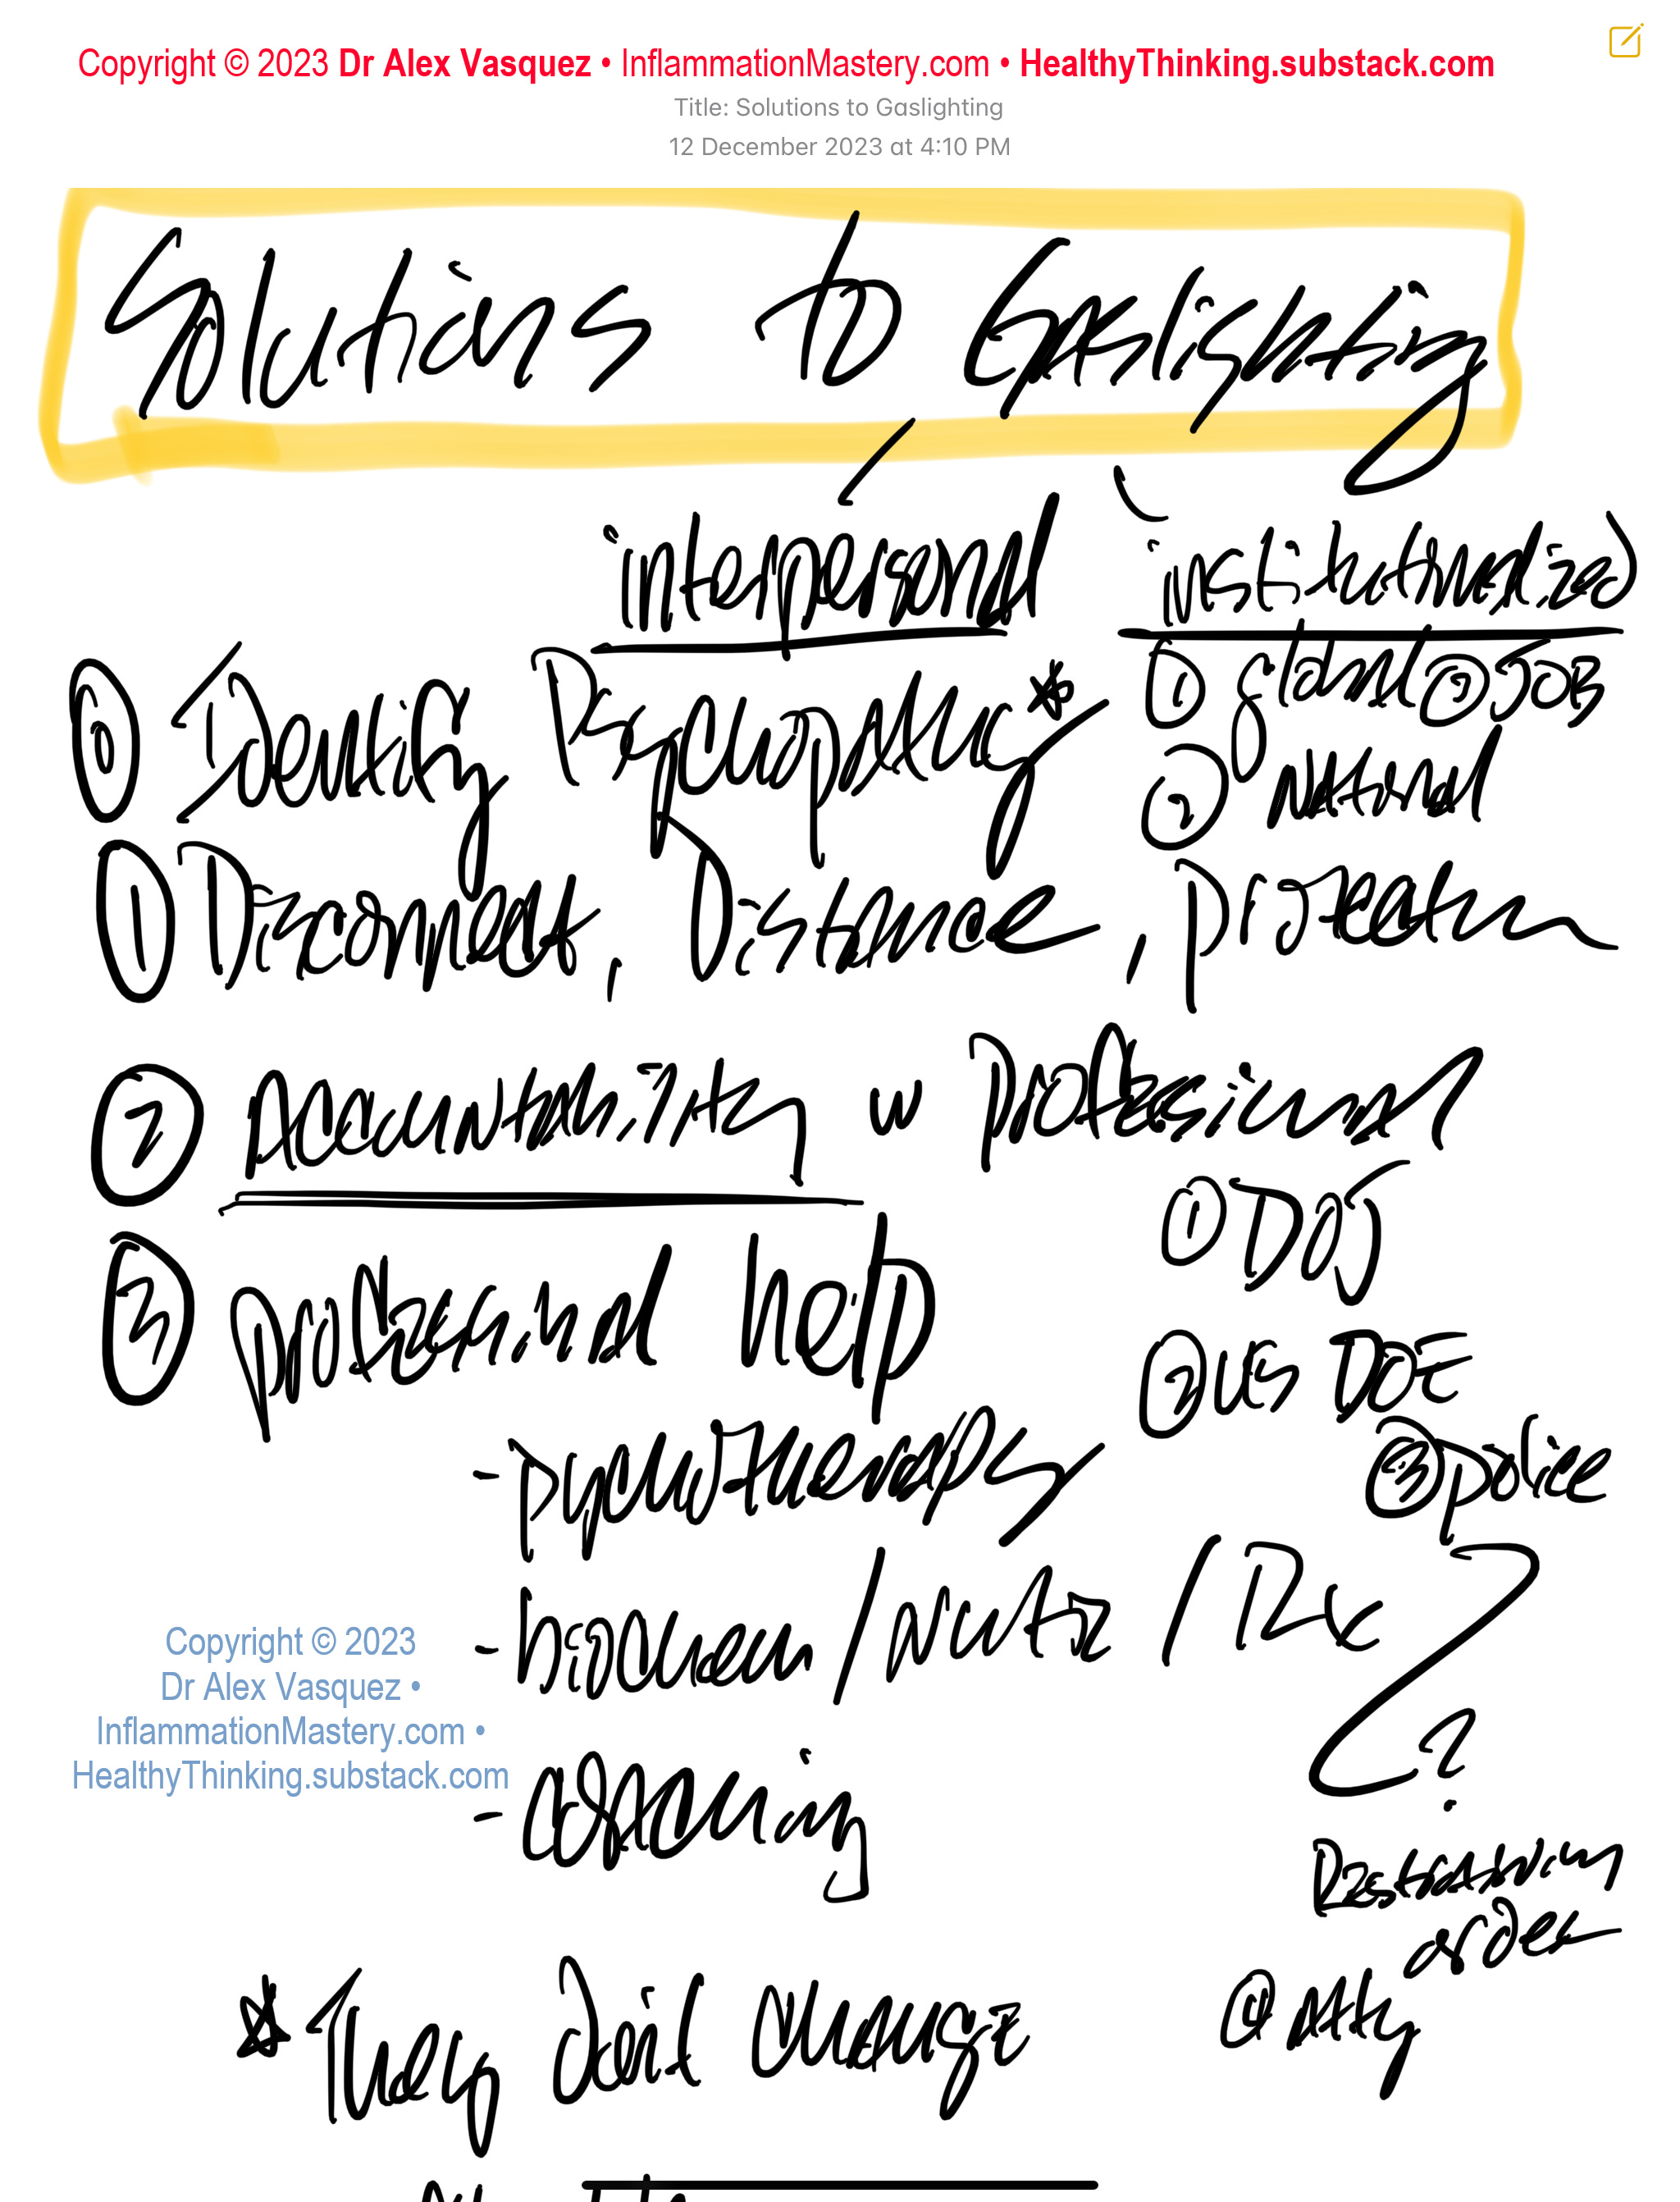 Copyright © 2023 Dr Alex Vasquez • InflammationMastery.com • HealthyThinking.substack.com
Title: Solutions to Gaslighting
12 December 2023 at 4:10 PM
Solutions to Gaslighting
interpersonal institutionalized
⓪ Identify Psychopathy* ① global ③ JOB
② National
① Disconnect, Distance, protection
② Accountability w professional
① DOJ
③ professional help
② US DOE
③ police
- psychotherapy
- biochem / Nutr / Rx
Copyright © 2023
Dr Alex Vasquez •
InflammationMastery.com •
HealthyThinking.substack.com
?
- coaching
Restraining
order
④ Atty
* They don't change